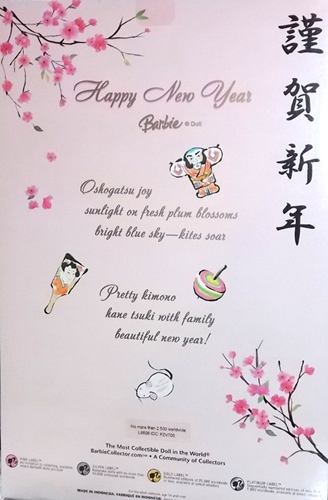 謹賀新年
Happy New Year
Barbie ® Doll
Oshogatsu joy
sunlight on fresh plum blossoms
bright blue sky—kites soar
Pretty kimono
hane tsuki with family
beautiful new year!
No more than 2,500 worldwide
The Most Collectible Doll in the World®
BarbieCollector.com™ • A Community of Collectors
PINK LABEL™
SILVER LABEL™
GOLD LABEL™
PLATINUM LABEL™
MADE IN INDONESIA.